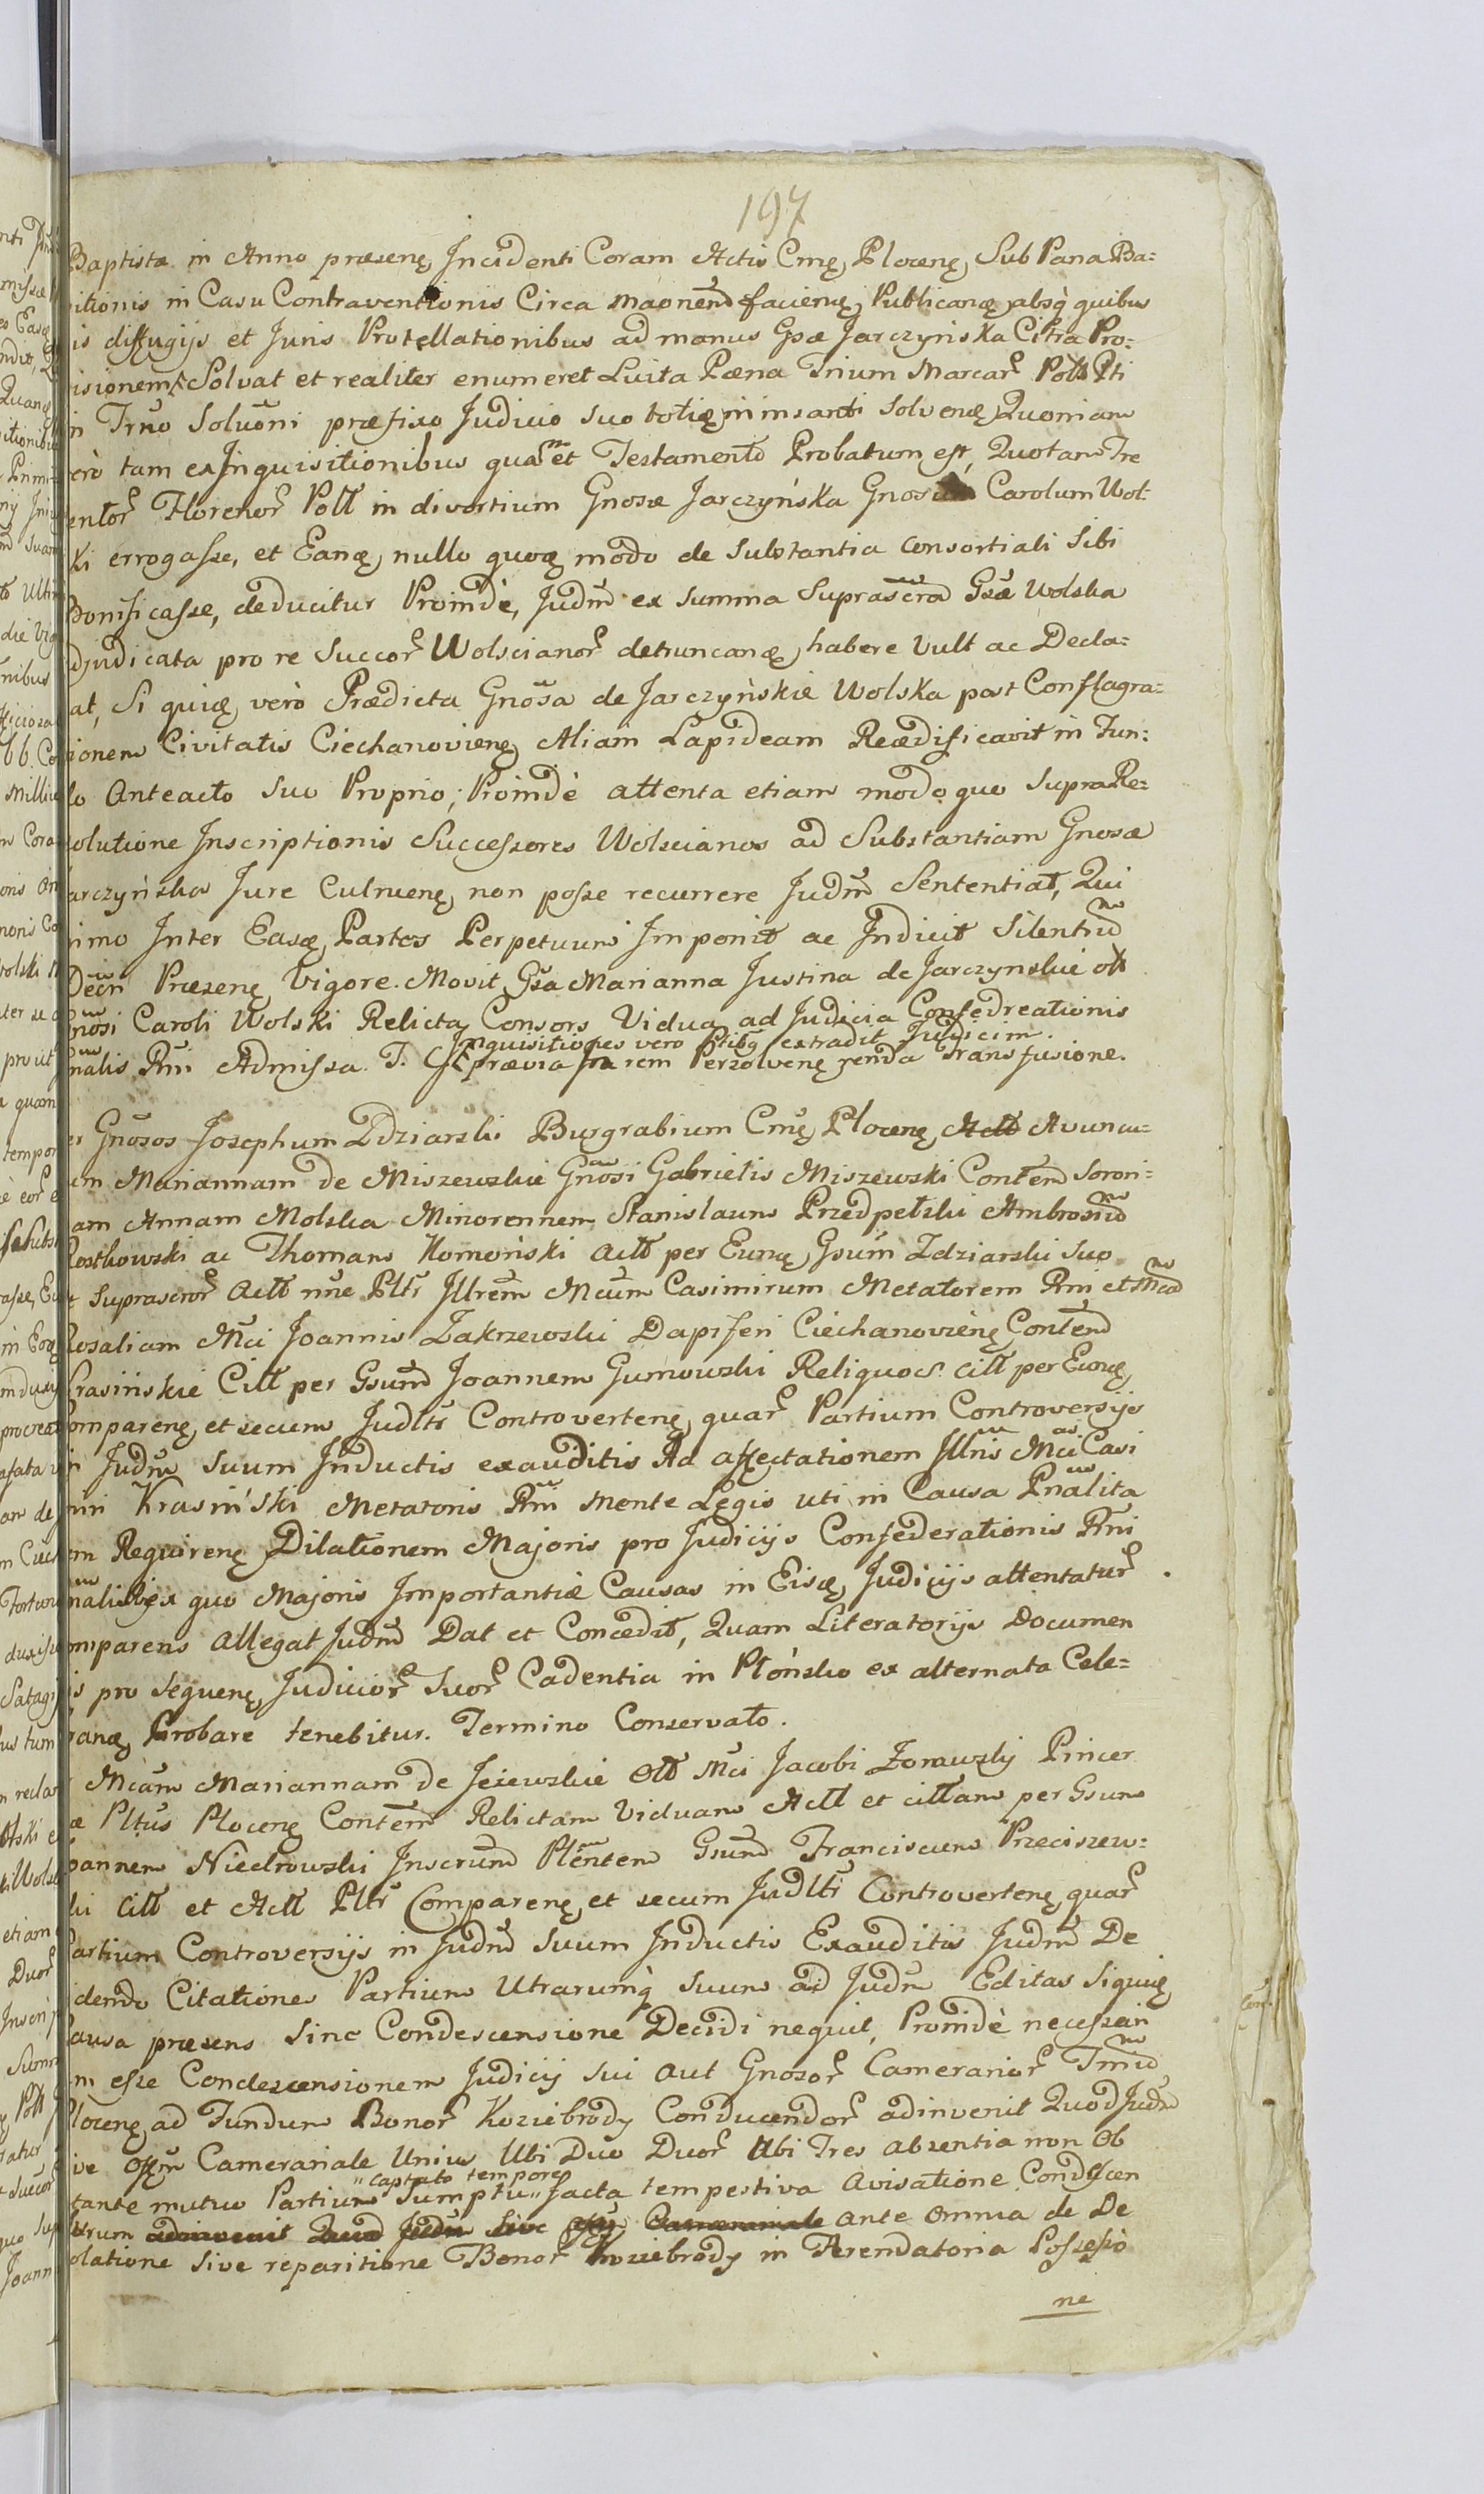 197
Baptistæ in Anno præsenę Incidenti Coram Actis Cmę Plocenę Sub Pæna Ba-
itionis in Casu Contraventionis Circa faciemę Publicanę absq̀ quibus
is diffugijs et Juris Protellationibus ad manus Gsæ Jarczyńska Citra Pro-
isionem Solvat et realiter enumeret Luita Pæna Trium Marcar Poll Pti
n Trno Solvoni præfixo Judicio suo totię in insanti solvenę Quoniam
erò tam ex Inquisitionibus quam et Testamento Probatum est, Quotam Tre
entor Florenor Poll in divortium Gnosæ Jarczyńska Carolum Wol-
ki errogasse, et Eanę nullo quoę modo de Substantia Consortiali Sibi
Bonificasse, deducitur Proindè, Judm ex Summa Suprascra Gsæ Wolska
djudicata pro re Succor Wolscianor detruncanę habere Vult ac Decla-
at, Si quię verò Prædicta Gnosa de Jarczyńskie Wolska post Conflagra-
ionem Civitatis Ciechanovienę Aliam Lapideam Reædificavit in Fun-
lo Anteacto suo Proprio; Proindè attenta etiam modo quo Supra Re-
solutione Inscriptionis Successores Wolscianos ad Substantiam Gnosæ
arczyńska Jure Culmenę non posse recurrere Judm Sententiat, Qui
imo Inter Easę Partes Perpetuum Imponit ac Indicit Silentiu
Decn Præsenę Vigore. Movit Gsa Marianna Justina de Jarczynskie olt
Gnosi Caroli Wolski Relicta Consors Vidua ad Judicia Confedreationis
Inquisitiones vero Ptibę extradit Judicim.
nalis Rni Admissa. T. C. prævia in rem Persolvenę zenda Transfusione.
er Gnosos Josephum Zdziarski Burgrabium Cmę Plocenę Actt Avuncu-
um Mariannam de Miszewskie Gnosi Gabrielis Miszewski Contem Soron-
am Annam Molska Minorennem Stanislaum Przedpełski Ambrosiu
Rostkowski ac Thomam Komoński actt per Eunę Gsum Zdziarski suo
t suprascror Actt nne Pltr Illrem Mcum Casimirum Metatorem Rni et Mca
Rosaliam Mci Joannis Zakrzewski Dapiferi Ciechanovienę Contem
Krasińskie Citt per Gsum Joannem Gumowski Reliquos citt per Eunę
omparenę et secum Judltr Controvertenę quar Partium Controversijs
n Judm suum Inductis exauditis Ad affectationem Illris Mci Casi
miri Krasiński Metatoris Rni Mente Legis uti in Causa Pnalita
em Requirenę Dilationem Majoris pro Judicijs Confederationis Rni
nalis ex quo Majoris Importantiæ Causas in Eisę Judicijs attentatur
omparens allegat Judm Dat et Concedit, Quam Literatorijs Documen
is pro sequenę Judicior Suor Cadentia in Płońsko ex alternata Cele-
ranę Probare tenebitur. Termino Conservato.
Mcam Mariannam de Jeżewskie Olt Mci Jacobi Zorawskj Pincer
æ Pltus Plocenę Contem Relictam Viduam Actt et cittam per Gsum
oannem Niedrowski Inscrum Plentem Gsum Franciscum Przeciszew-
ki citt et Actt Pltr Comparenę et secum Judltr Controvertenę quar
Partium Controversijs in Judm suum Inductis Exauditis Judm De
idendo Citationes Partium Utrarumq̀ suum ad Judm Editas siquię
Causa præsens Sine Condescensione Decidi nequit, Proindè necessari
m esse Condescensionem Judicij sui aut Gnosor Camerarior Tmiu
Plocenę ad Fundum Bonor Koziebrody Conducendor adinvenit Quod Judm
ive Offm Camerariale Unius Ubi Duo Duor Ubi Tres absentia non Ob
captato tempore
tante mutuo Partium Sumptu facta tempestiva Avisatione Condescen
urum adinvenit Quod Judm Sive Offm Camerariale ante omnia de De
olatione Sive reparitione Bonor Koziebrody in Arendatoria Possessio
ne